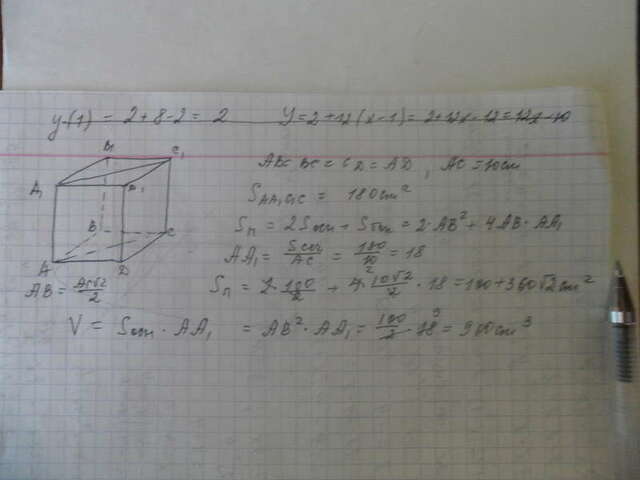 y(1) = 2+8-2= 2 y=2+12(x-1)=2+12x-12=12x-10
B₁ C₁
A₁ D₁
AB=BC=CD=AD, AC=10см
S_AA₁C₁C = 180см²
B C
Sп = 2Sосн + Sбок = 2·AB² + 4AB·AA₁
AA₁ = Sсеч/AC = 180/10 = 18
A D
AB = AC√2/2 Sп = 2·100/2 + 4·10√2/2 · 18 = 100+360√2см²
V = Sосн · AA₁ = AB² · AA₁ = 100/2 · 18 9 = 900см³